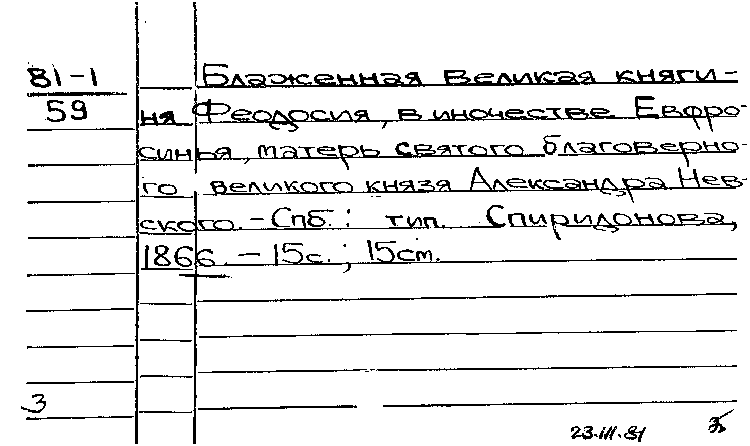 81-1
59
Блаженная великая княги-
ня Феодосия, в иночестве Евфро-
синья, матерь святого благоверно-
го великого князя Александра Нев-
ского. - Спб.: тип. Спиридонова,
1866. - 15с.; 15см.
3
23.III.81